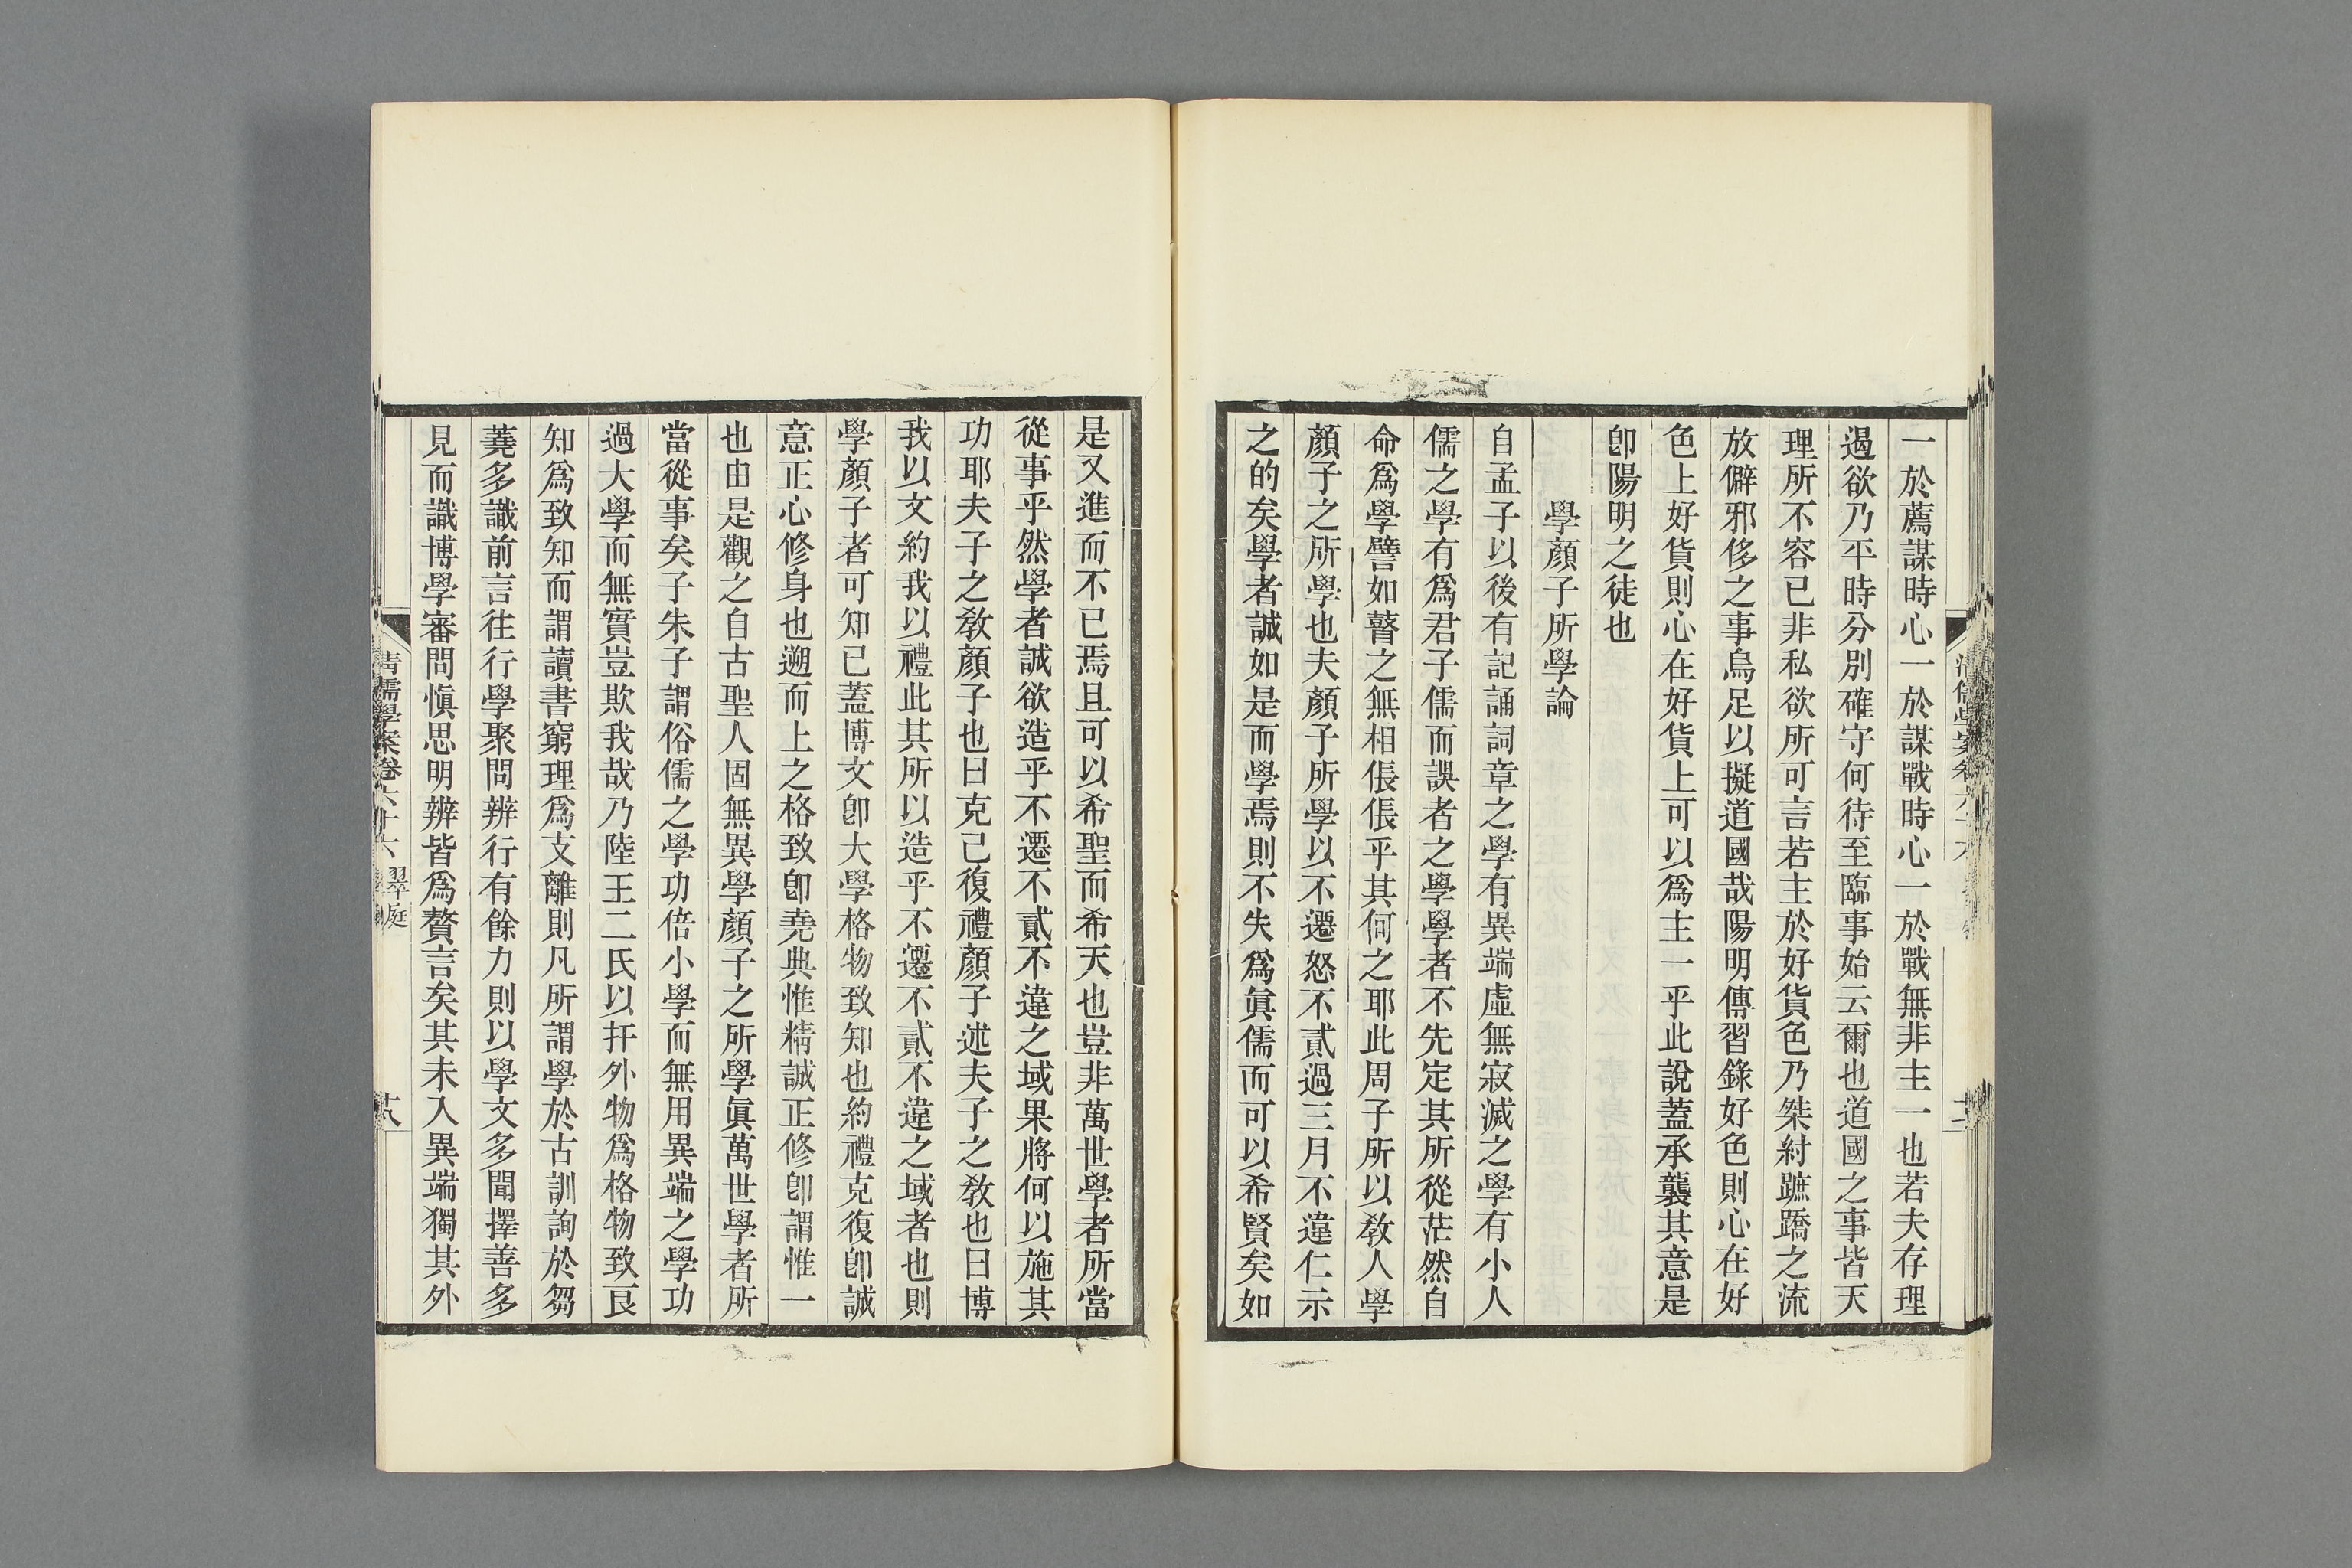 一於薦謀時心一於謀戰時心一於戰無非主一也若夫存理
遏欲乃平時分別確守何待至臨事始云爾也道國之事皆天
理所不容已非私欲所可言若主於好貨色乃桀紂蹠蹻之流
放僻邪侈之事烏足以擬道國哉陽明傳習錄好色則心在好
色上好貨則心在好貨上可以爲主一乎此說蓋承襲其意是
卽陽明之徒也
學顏子所學論
自孟子以後有記誦詞章之學有異端虛無寂滅之學有小人
儒之學有爲君子儒而誤者之學學者不先定其所從茫然自
命爲學譬如瞽之無相倀倀乎其何之耶此周子所以敎人學
顏子之所學也夫顏子所學以不遷怒不貳過三月不違仁示
之的矣學者誠如是而學焉則不失爲眞儒而可以希賢矣如
是又進而不已焉且可以希聖而希天也豈非萬世學者所當
從事乎然學者誠欲造乎不遷不貳不違之域果將何以施其
功耶夫子之敎顏子也曰克己復禮顏子述夫子之敎也曰博
我以文約我以禮此其所以造乎不遷不貳不違之域者也則
學顏子者可知已蓋博文卽大學格物致知也約禮克復卽誠
意正心修身也遡而上之格致卽堯典惟精誠正修卽謂惟一
也由是觀之自古聖人固無異學顏子之所學眞萬世學者所
當從事矣子朱子謂俗儒之學功倍小學而無用異端之學功
過大學而無實豈欺我哉乃陸王二氏以扞外物爲格物致良
知爲致知而謂讀書窮理爲支離則凡所謂學於古訓詢於芻
蕘多識前言往行學聚問辨行有餘力則以學文多聞擇善多
見而識博學審問愼思明辨皆爲贅言矣其未入異端獨其外
清儒學案卷六十六 翠庭
十八